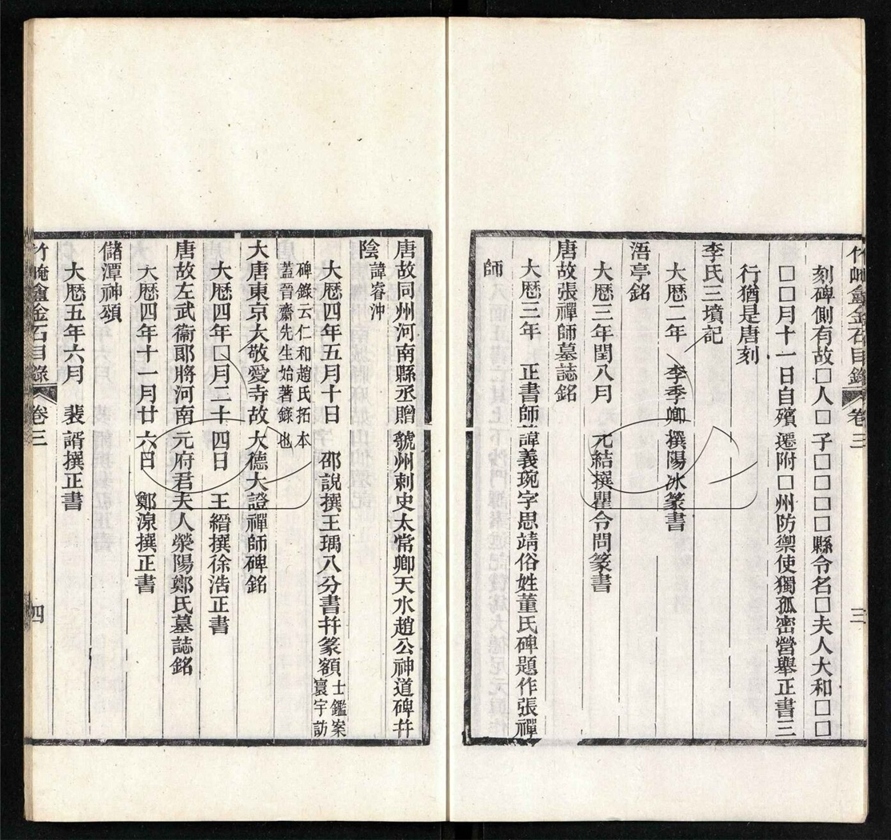 刻碑側有故□人□子□□□□縣令名□夫人大和□□
□□月十一日自殯遷附□州防禦使獨孤密營舉正書三
行猶是唐刻
李氏三墳記
大曆二年 李季卿撰陽冰篆書
浯亭銘
大曆三年閏八月 元結撰瞿令問篆書
唐故張禪師墓誌銘
大曆三年 正書師諱義琬字思靖俗姓董氏碑題作張禪
師
竹崦盦金石目錄 卷三 三
唐故同州河南縣丞贈虢州刺史太常卿天水趙公神道碑幷
陰 諱睿沖
大曆四年五月十日 邵說撰王瑀八分書幷篆額 士鑑案寰宇訪
碑錄云仁和趙氏拓本
蓋晉齋先生始著錄也
大唐東京大敬愛寺故大德大證禪師碑銘
大曆四年□月二十四日 王縉撰徐浩正書
唐故左武衞郎將河南元府君夫人滎陽鄭氏墓誌銘
大曆四年十一月廿六日 鄭湶撰正書
儲潭神頌
大曆五年六月 裴諝撰正書
竹崦盦金石目錄 卷三 四